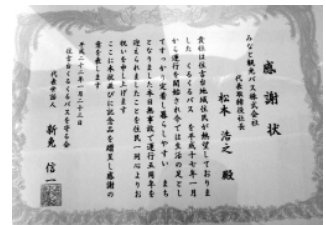 感謝状
みなと観光バス株式会社
代表取締役社長
松本 浩之 殿
貴社は住吉台地域住民が熱望しておりま
した くるくるバス を平成十七年一月
から運行を開始され今では生活の足とし
てすっかり定着し暮らしやすい まち
となりました本日無事故で運行五周年を
迎えられましたことを住民一同心よりお
祝いを申し上げます
ここに本状並びに記念品を贈呈し感謝の
意を表します
平成二十二年一月二十三日
住吉台くるくるバスを守る会
代表世話人
新免 信一